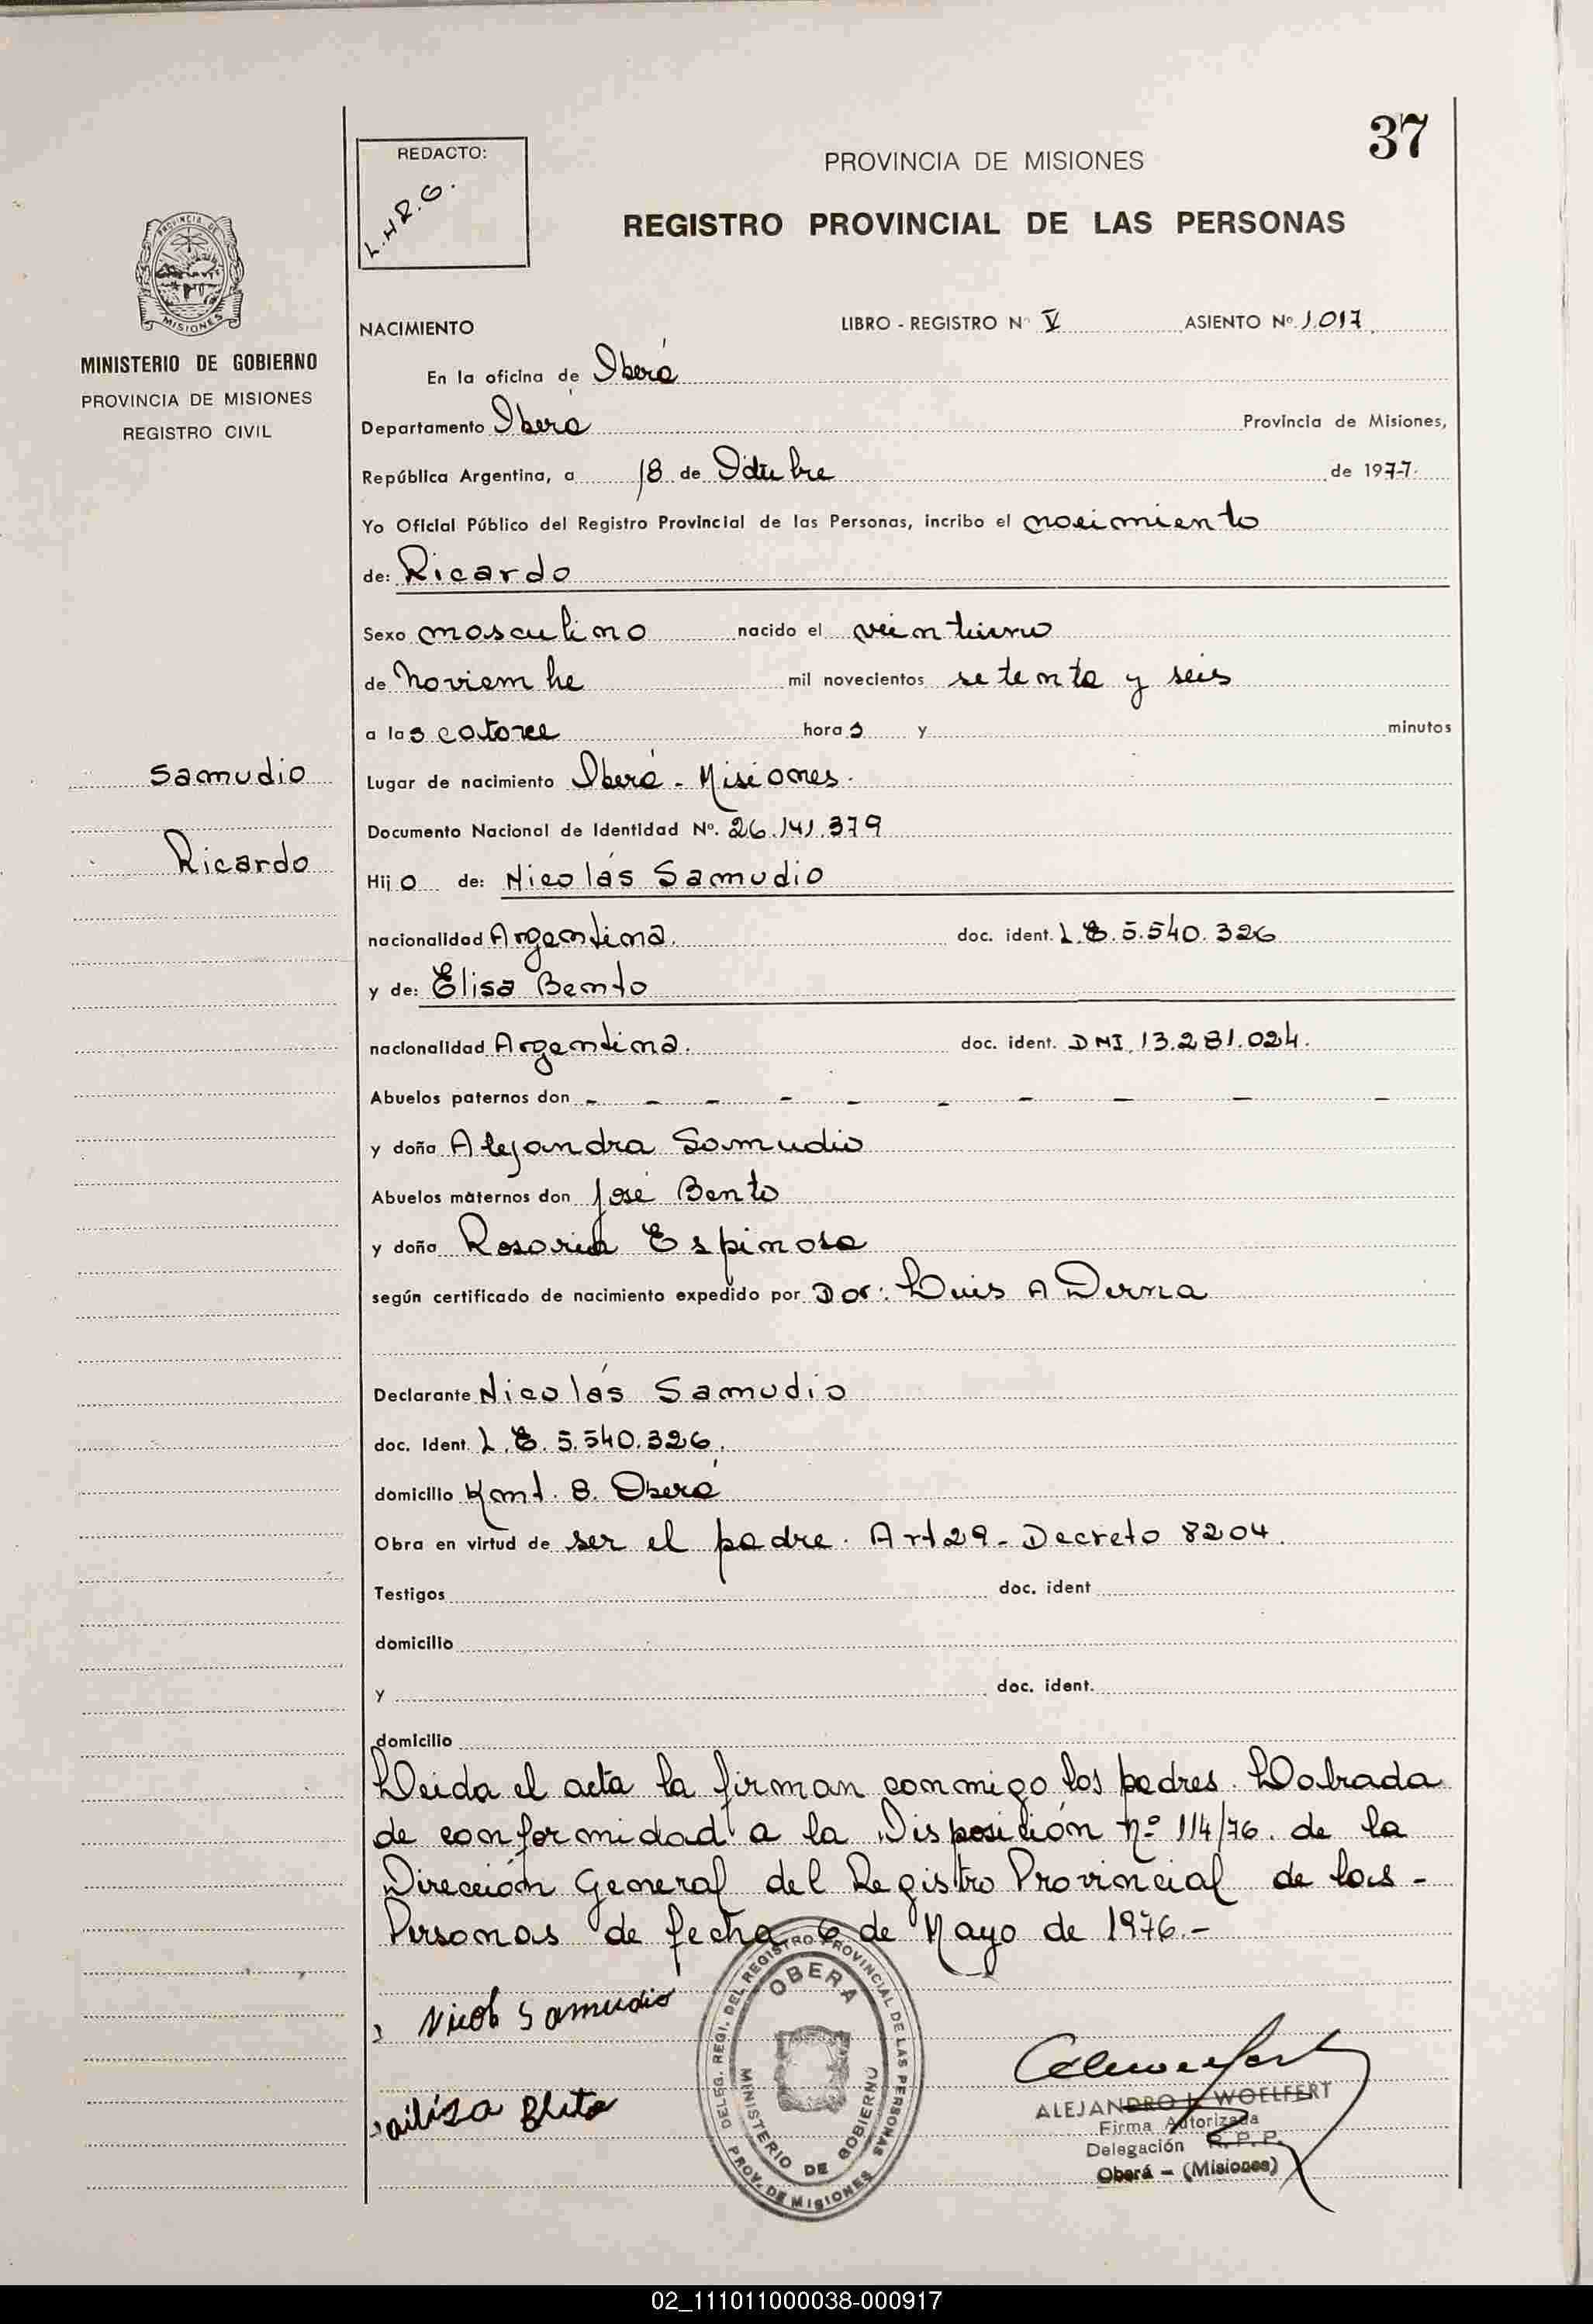 37
REDACTO:
L.H.R.G.
PROVINCIA DE MISIONES
REGISTRO PROVINCIAL DE LAS PERSONAS
PROVINCIA DE
MISIONES
MINISTERIO DE GOBIERNO
PROVINCIA DE MISIONES
REGISTRO CIVIL
NACIMIENTO LIBRO - REGISTRO Nº V ASIENTO Nº 1.017
En la oficina de Oberá
Departamento Oberá Provincia de Misiones,
República Argentina, a 18 de Octubre de 1977.
Yo Oficial Público del Registro Provincial de las Personas, incribo el nacimiento
de: Ricardo
Sexo masculino nacido el veintiuno
de Noviembre mil novecientos setenta y seis
a las catorce horas y minutos
Samudio
Lugar de nacimiento Oberá - Misiones.
Documento Nacional de Identidad Nº. 26.141.379
Ricardo
Hijo de: Nicolás Samudio
nacionalidad Argentina. doc. ident. L.E. 5.540.326
y de: Elisa Bento
nacionalidad Argentina. doc. ident. DNI. 13.281.024.
Abuelos paternos don - - - - - - - - - -
y doña Alejandra Samudio
Abuelos maternos don José Bento
y doña Rosaria Espinosa
según certificado de nacimiento expedido por Dor: Luis A Derna
Declarante Nicolás Samudio
doc. Ident. L.E. 5.540.326.
domicilio Kmt. 8. Oberá
Obra en virtud de ser el padre. Art 29 - Decreto 8204.
Testigos doc. ident
domicilio
y doc. ident.
domicilio
Leida el acta la firman conmigo los padres. Labrada
de conformidad a la Disposición nº 114/76. de la
Dirección General del Registro Provincial de las -
Personas de fecha 6 de Mayo de 1976.-
Nicol Samudio
DELEG. REGI. DEL REGISTRO PROVINCIAL DE LAS PERSONAS
OBERA
MINISTERIO DE GOBIERNO
PROV. DE MISIONES
ALEJANDRO L. WOELFERT
Firma Autorizada
Delegación R. P. P.
Oberá - (Misiones)
02_111011000038-000917